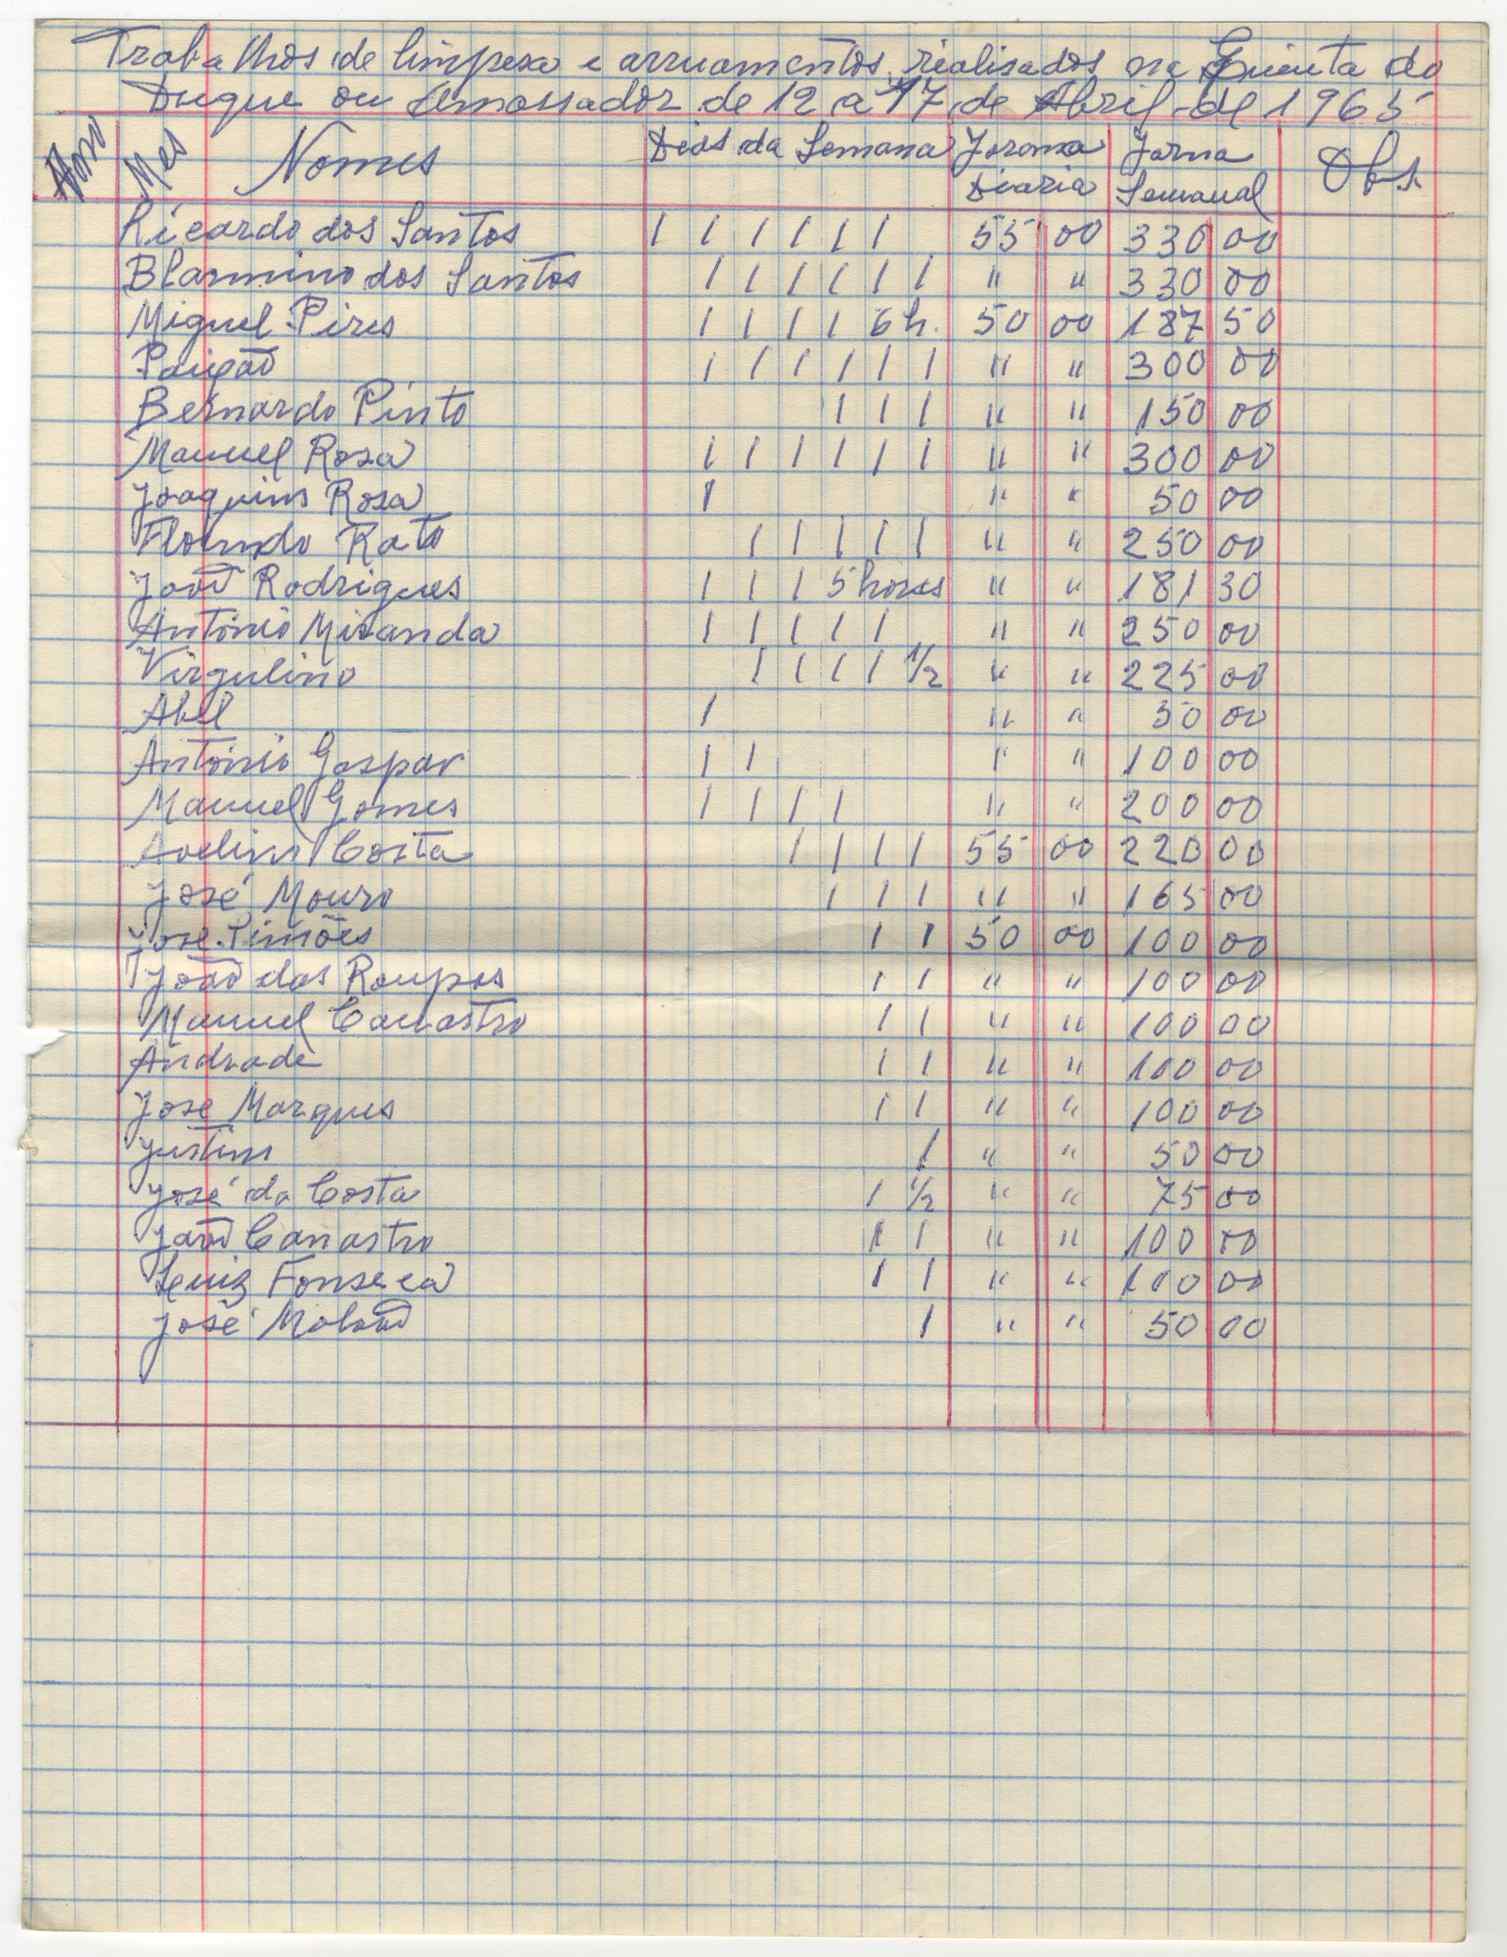 Trabalhos de limpesa e arruamentos realisados na Quinta do
Duque ou Amossador de 12 a 17 de Abril de 1965
Mes Nomes Dias da Semana Jorna Diaria Jorna Semanal Obs.
Ricardo dos Santos 1 1 1 1 1 1 55 00 330 00
Blarmino dos Santos 1 1 1 1 1 1 " " 330 00
Miguel Pires 1 1 1 1 6h. 50 00 187 50
1 1 1 1 1 1 " " 300 00
Bernardo Pinto 1 1 1 " " 150 00
Manuel Rosa 1 1 1 1 1 1 " " 300 00
Joaquim Rosa 1 " " 50 00
Florindo Rato 1 1 1 1 1 " " 250 00
João Rodrigues 1 1 1 5 horas " " 181 30
António Miranda 1 1 1 1 1 " " 250 00
Virgulino 1 1 1 1 1/2 " " 225 00
Abel 1 " " 50 00
António Gaspar 1 1 " " 100 00
Manuel Gomes 1 1 1 1 " " 200 00
Avelino Costa 1 1 1 1 55 00 220 00
José Mouro 1 1 1 " " 165 00
José Simões 1 1 50 00 100 00
João das Roupas 1 1 " " 100 00
Manuel Canastro 1 1 " " 100 00
Andrade 1 1 " " 100 00
José Marques 1 1 " " 100 00
Justino 1 " " 50 00
José da Costa 1 1/2 " " 75 00
João Canastro 1 1 " " 100 00
Luiz Fonseca 1 1 " " 100 00
José 1 " " 50 00